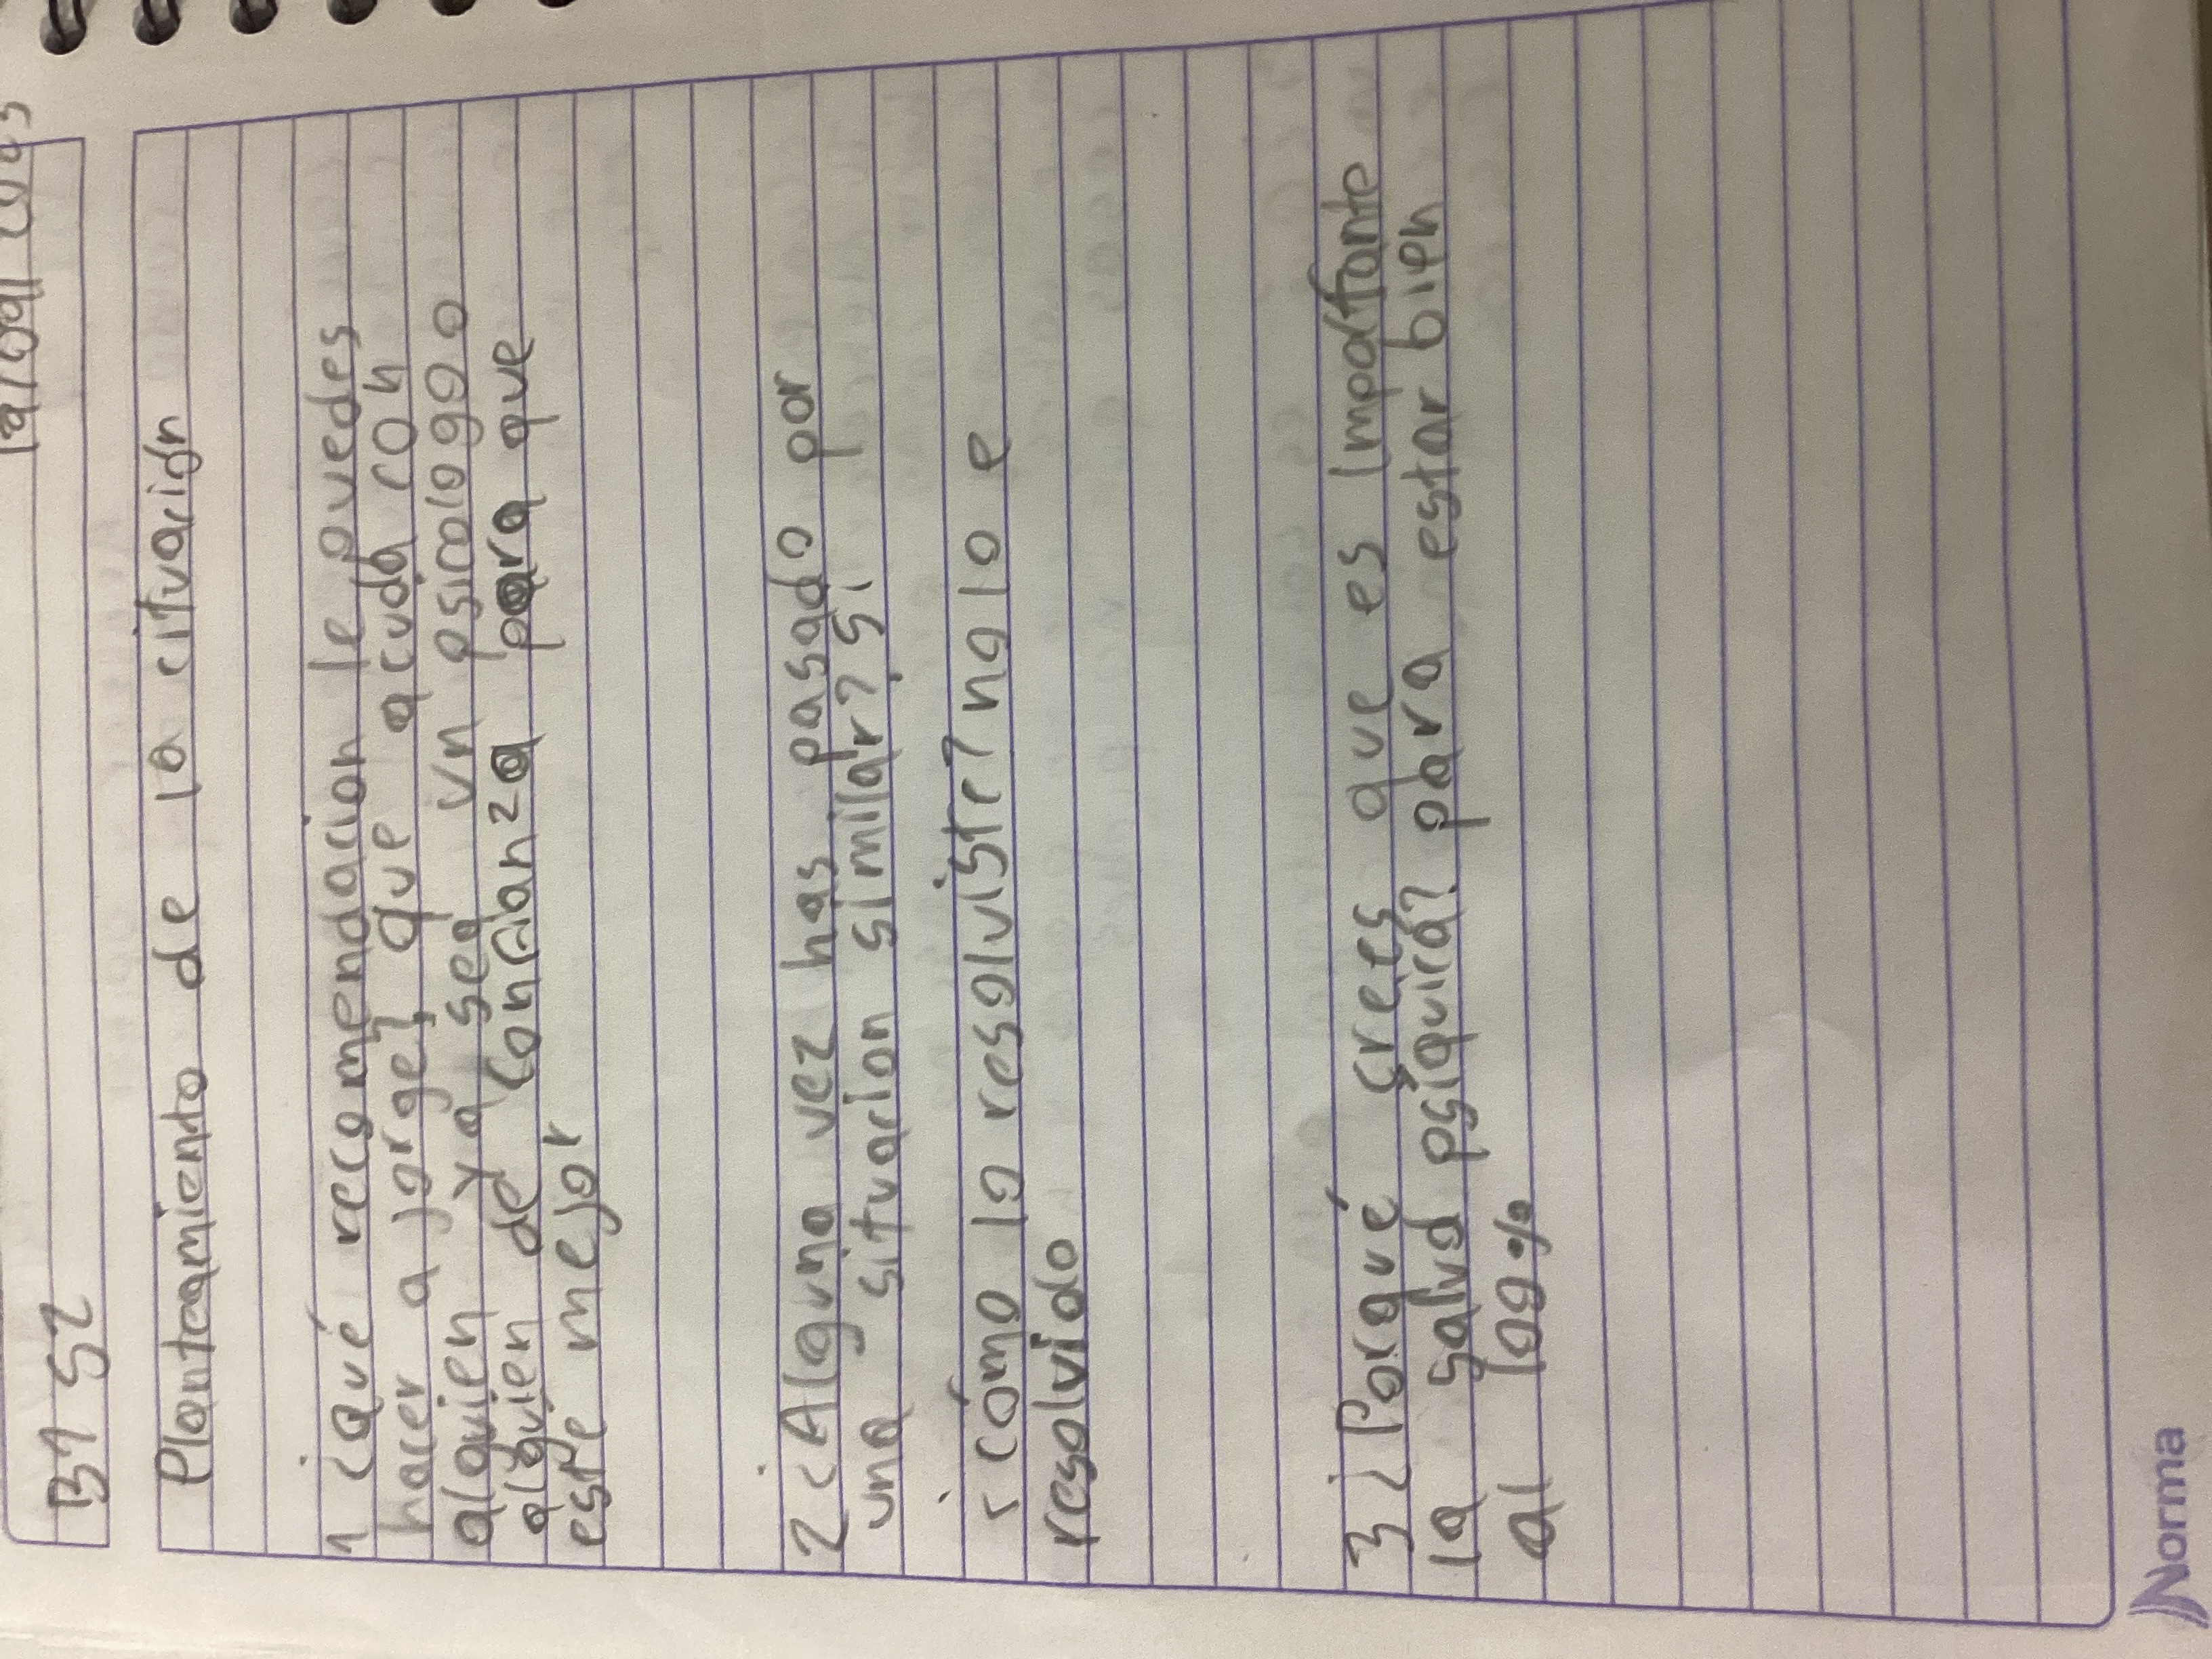 B1 S2
Planteamiento de la cituación
1 ¿Qué recomendacion le puedes
hacer a jorge? que acuda con
alguien ya sea un psicologgo
alguien de confianza para que
este mejor
2 ¿Alguna vez has pasado por
una situacion similar? si
¿cómo lo resolviste? no lo e
resolvido
3 ¿Porqué crees que es importante
la salud psíquica? para estar bien
al 100%
Norma